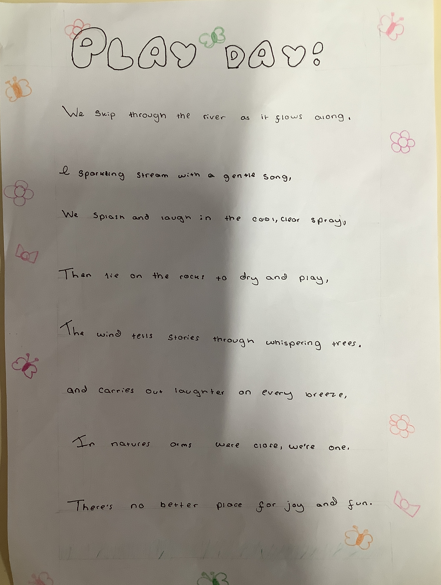 PLAY DAY!
We skip through the river as it flows along,
A sparkling stream with a gentle song,
We splash and laugh in the cool, clear spray,
Then lie on the rocks to dry and play,
The wind tells stories through whispering trees.
and carries our laughter on every breeze,
In natures arms were close, we're one.
There's no better place for joy and fun.